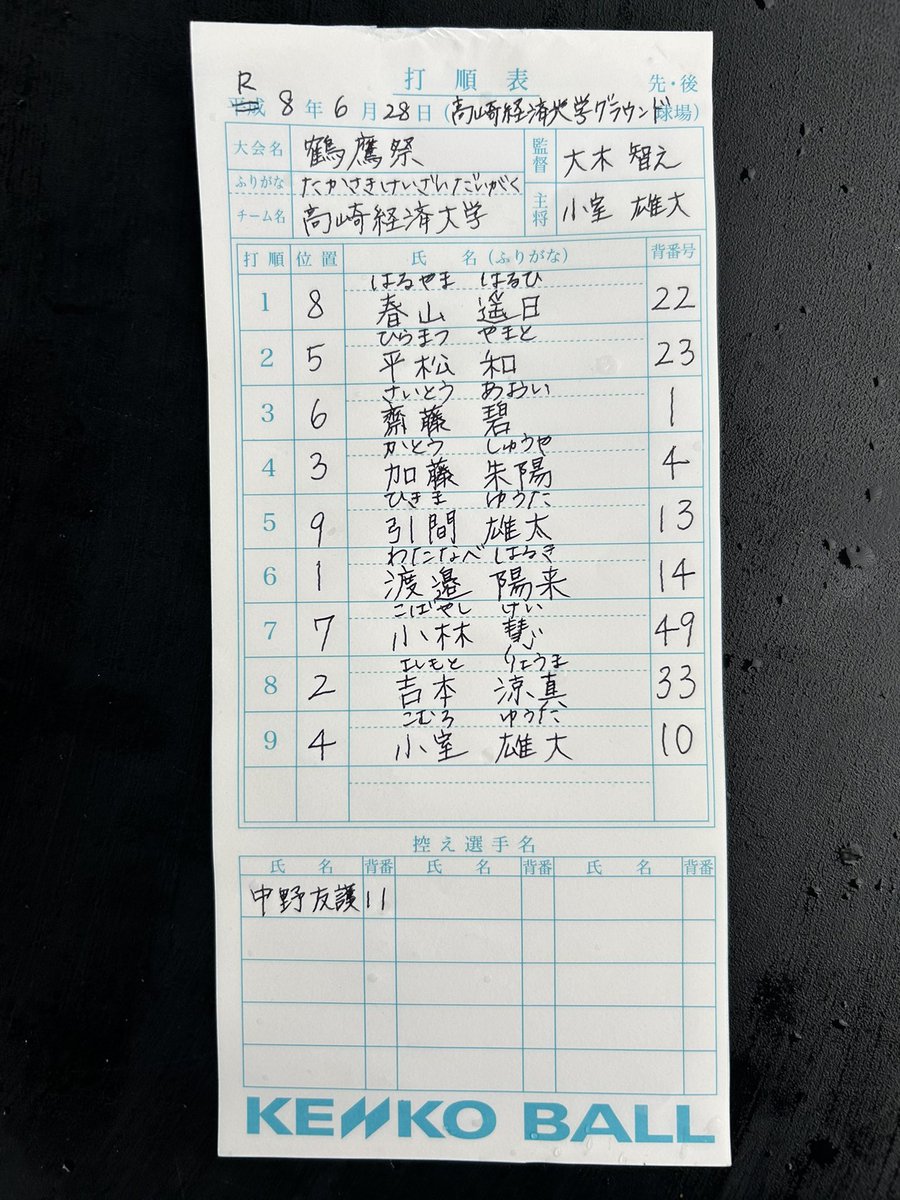 打順表
先・後
R
平成 8 年 6 月 28 日 (高崎経済大学グラウンド球場)
大会名 鶴鷹祭 監督 大木 智え
ふりがな たかさきけいざいだいがく
チーム名 高崎経済大学 主将 小室 雄大
打順 位置 氏名(ふりがな) 背番号
はるやま はるひ
1 8 春山 遥日 22
ひらまつ やまと
2 5 平松 和 23
さいとう あおい
3 6 齋藤 碧 1
かとう しゅうや
4 3 加藤 朱陽 4
ひきま ゆうた
5 9 引間 雄太 13
わたなべ はるき
6 1 渡邉 陽来 14
こばやし けい
7 7 小林 慧 49
よしもと りょうま
8 2 吉本 涼真 33
こむろ ゆうだい
9 4 小室 雄大 10
控え選手名
氏名 背番 氏名 背番 氏名 背番
中野友護 11
KENKO BALL